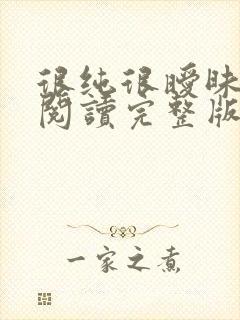 很純很曖昧
閱讀完整版
一家之煮